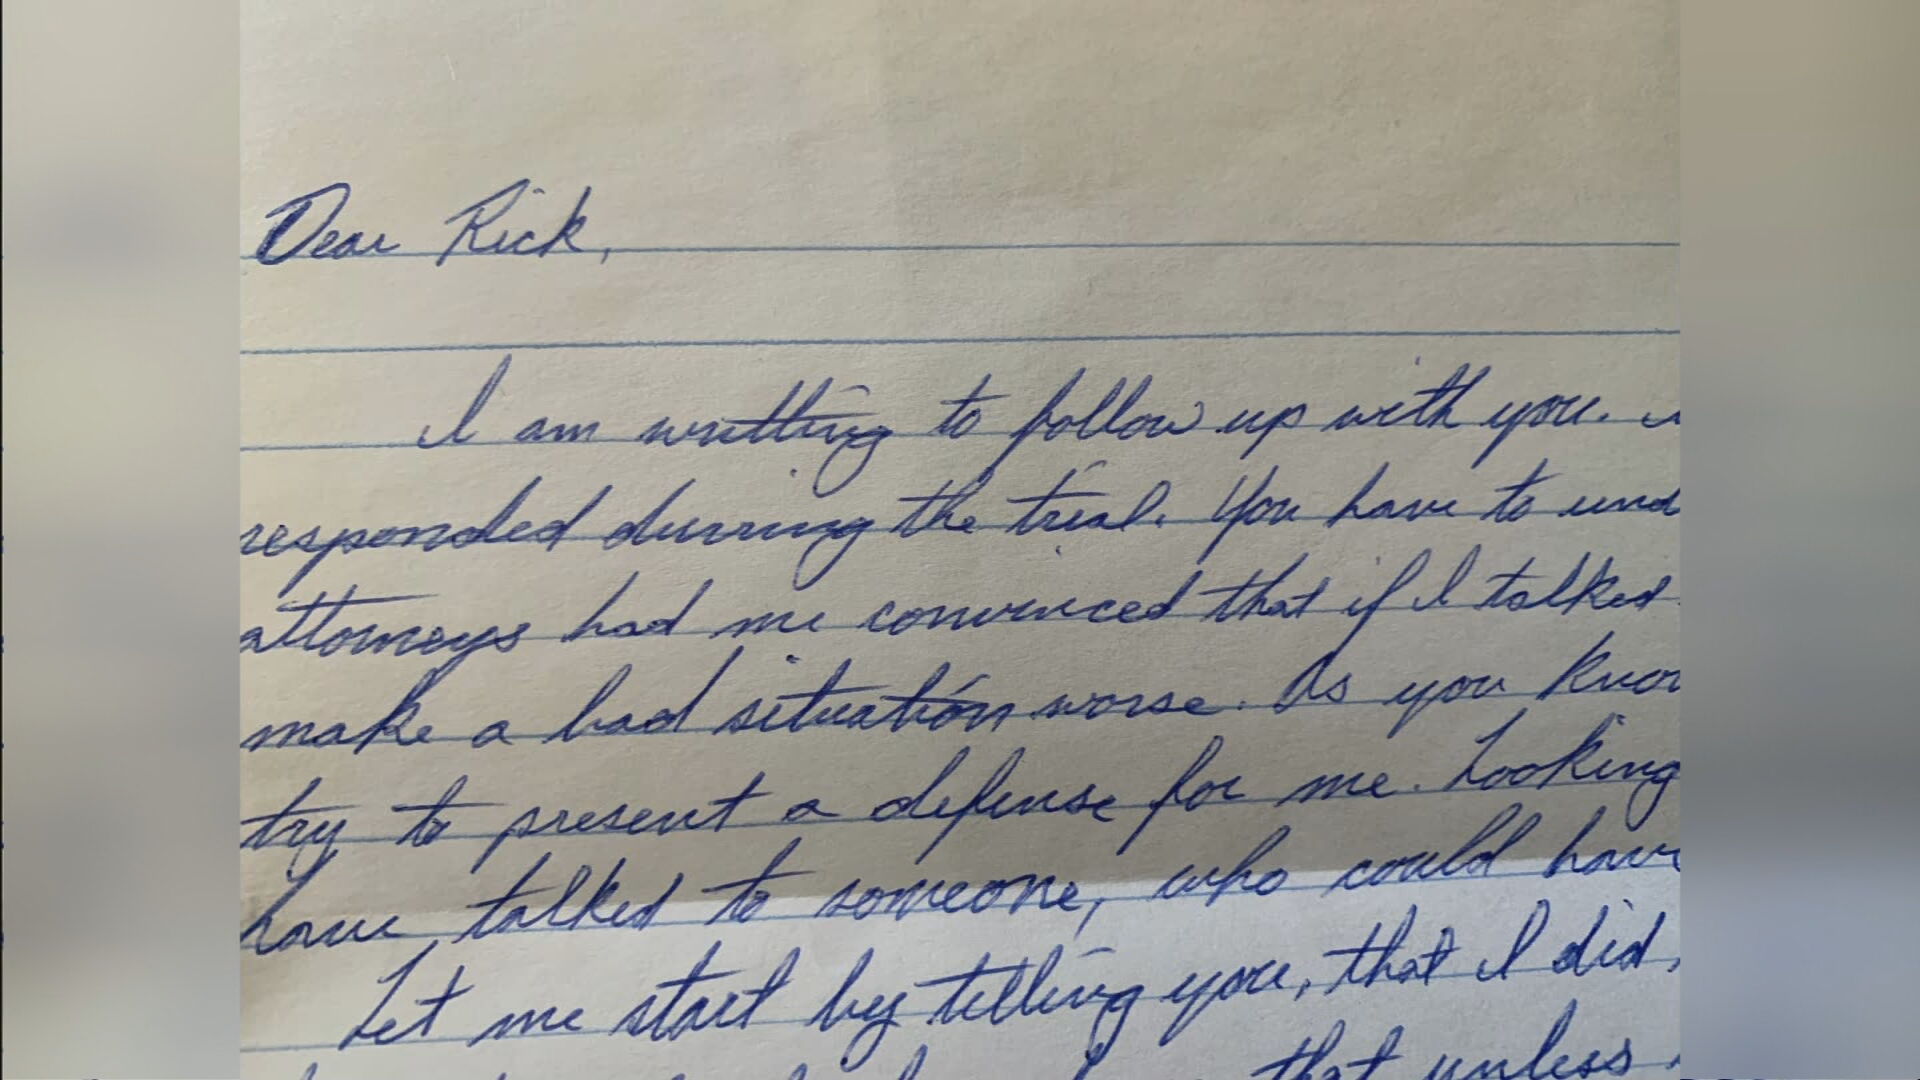 Dear Rick,
I am writting to follow up with you. I
responded durring the trial. You have to und
attorneys had me convinced that if I talked
make a bad situation worse. As you know
try to present a defense for me. Looking
have talked to someone, who could have
Let me start by telling you, that I did,
that unless